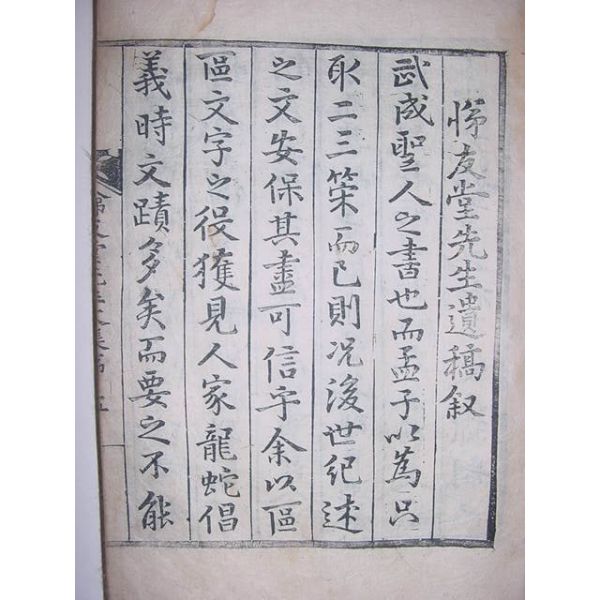 悌友堂先生遺稿叙
武成聖人之書也而孟子以為只
取二三策而已則况後世紀述
之文安保其盡可信乎余以區
區文字之役獲見人家龍蛇倡
義時文蹟多矣而要之不能